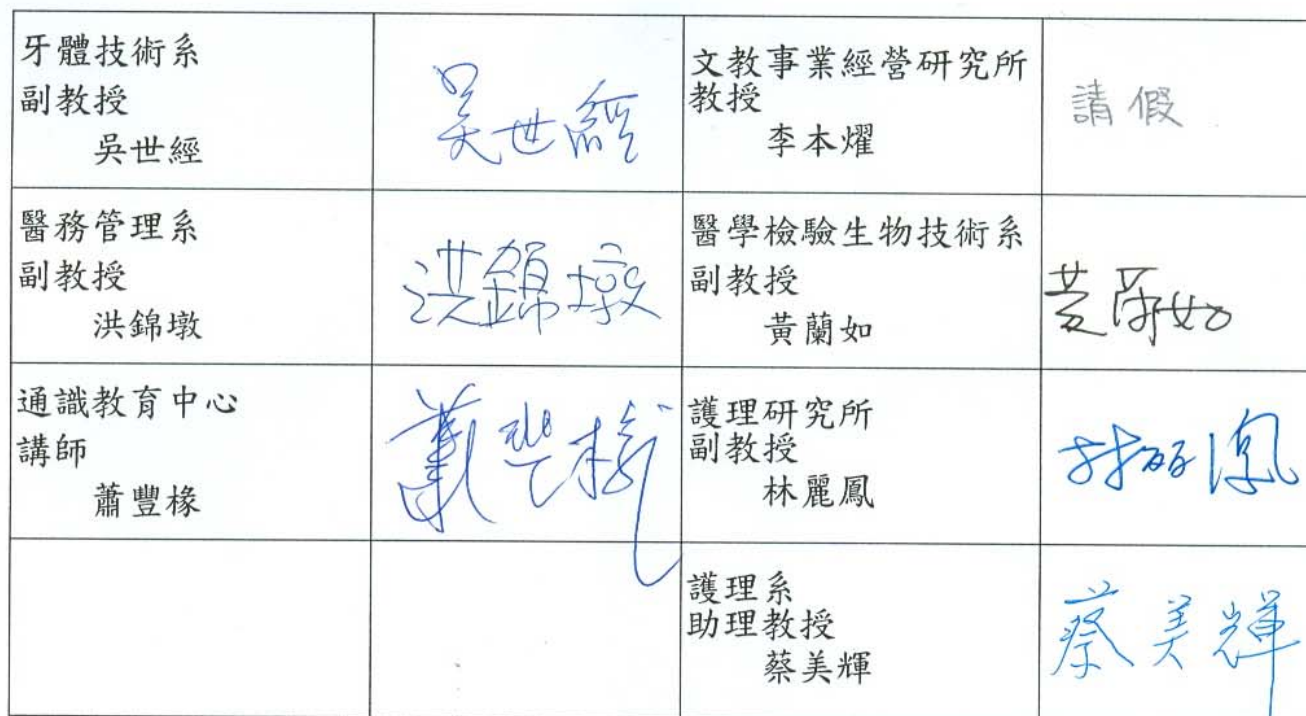 牙體技術系
副教授
吳世經
吳世經
文教事業經營研究所
教授
李本燿
請假
醫務管理系
副教授
洪錦墩
洪錦墩
醫學檢驗生物技術系
副教授
黃蘭如
黃蘭如
通識教育中心
講師
蕭豐椽
蕭豐椽
護理研究所
副教授
林麗鳳
林麗鳳
護理系
助理教授
蔡美輝
蔡美輝